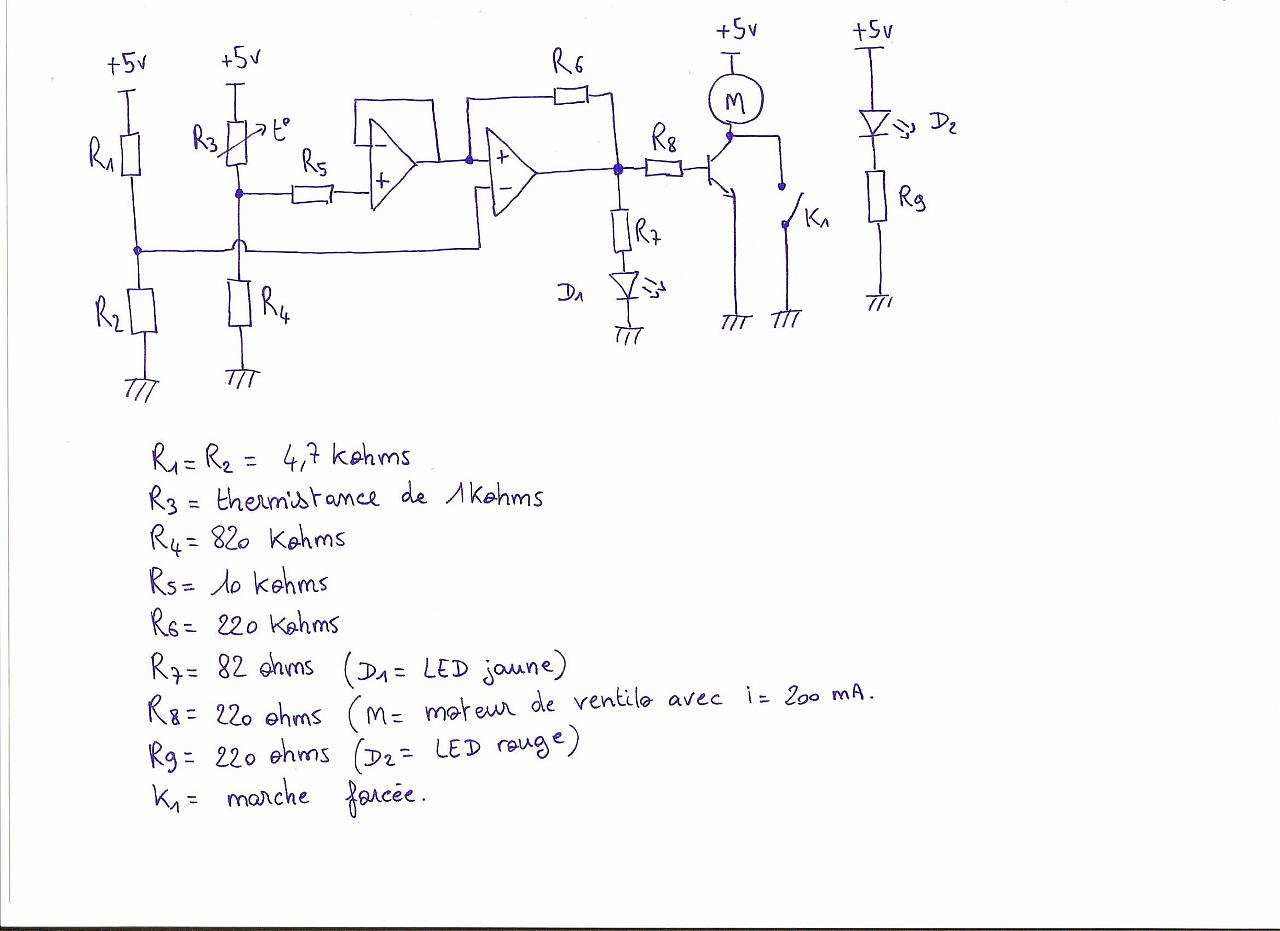 +5v
+5v
+5v
+5v
R1
R3
t°
R5
R6
R8
M
D2
R9
K1
R7
D1
R2
R4
-
+
+
-
R1 = R2 = 4,7 kohms
R3 = thermistance de 1Kohms
R4 = 820 Kohms
R5 = 10 kohms
R6 = 220 Kohms
R7 = 82 ohms (D1 = LED jaune)
R8 = 220 ohms (M = moteur de ventilo avec i = 200 mA.
R9 = 220 ohms (D2 = LED rouge)
K1 = marche forcée.